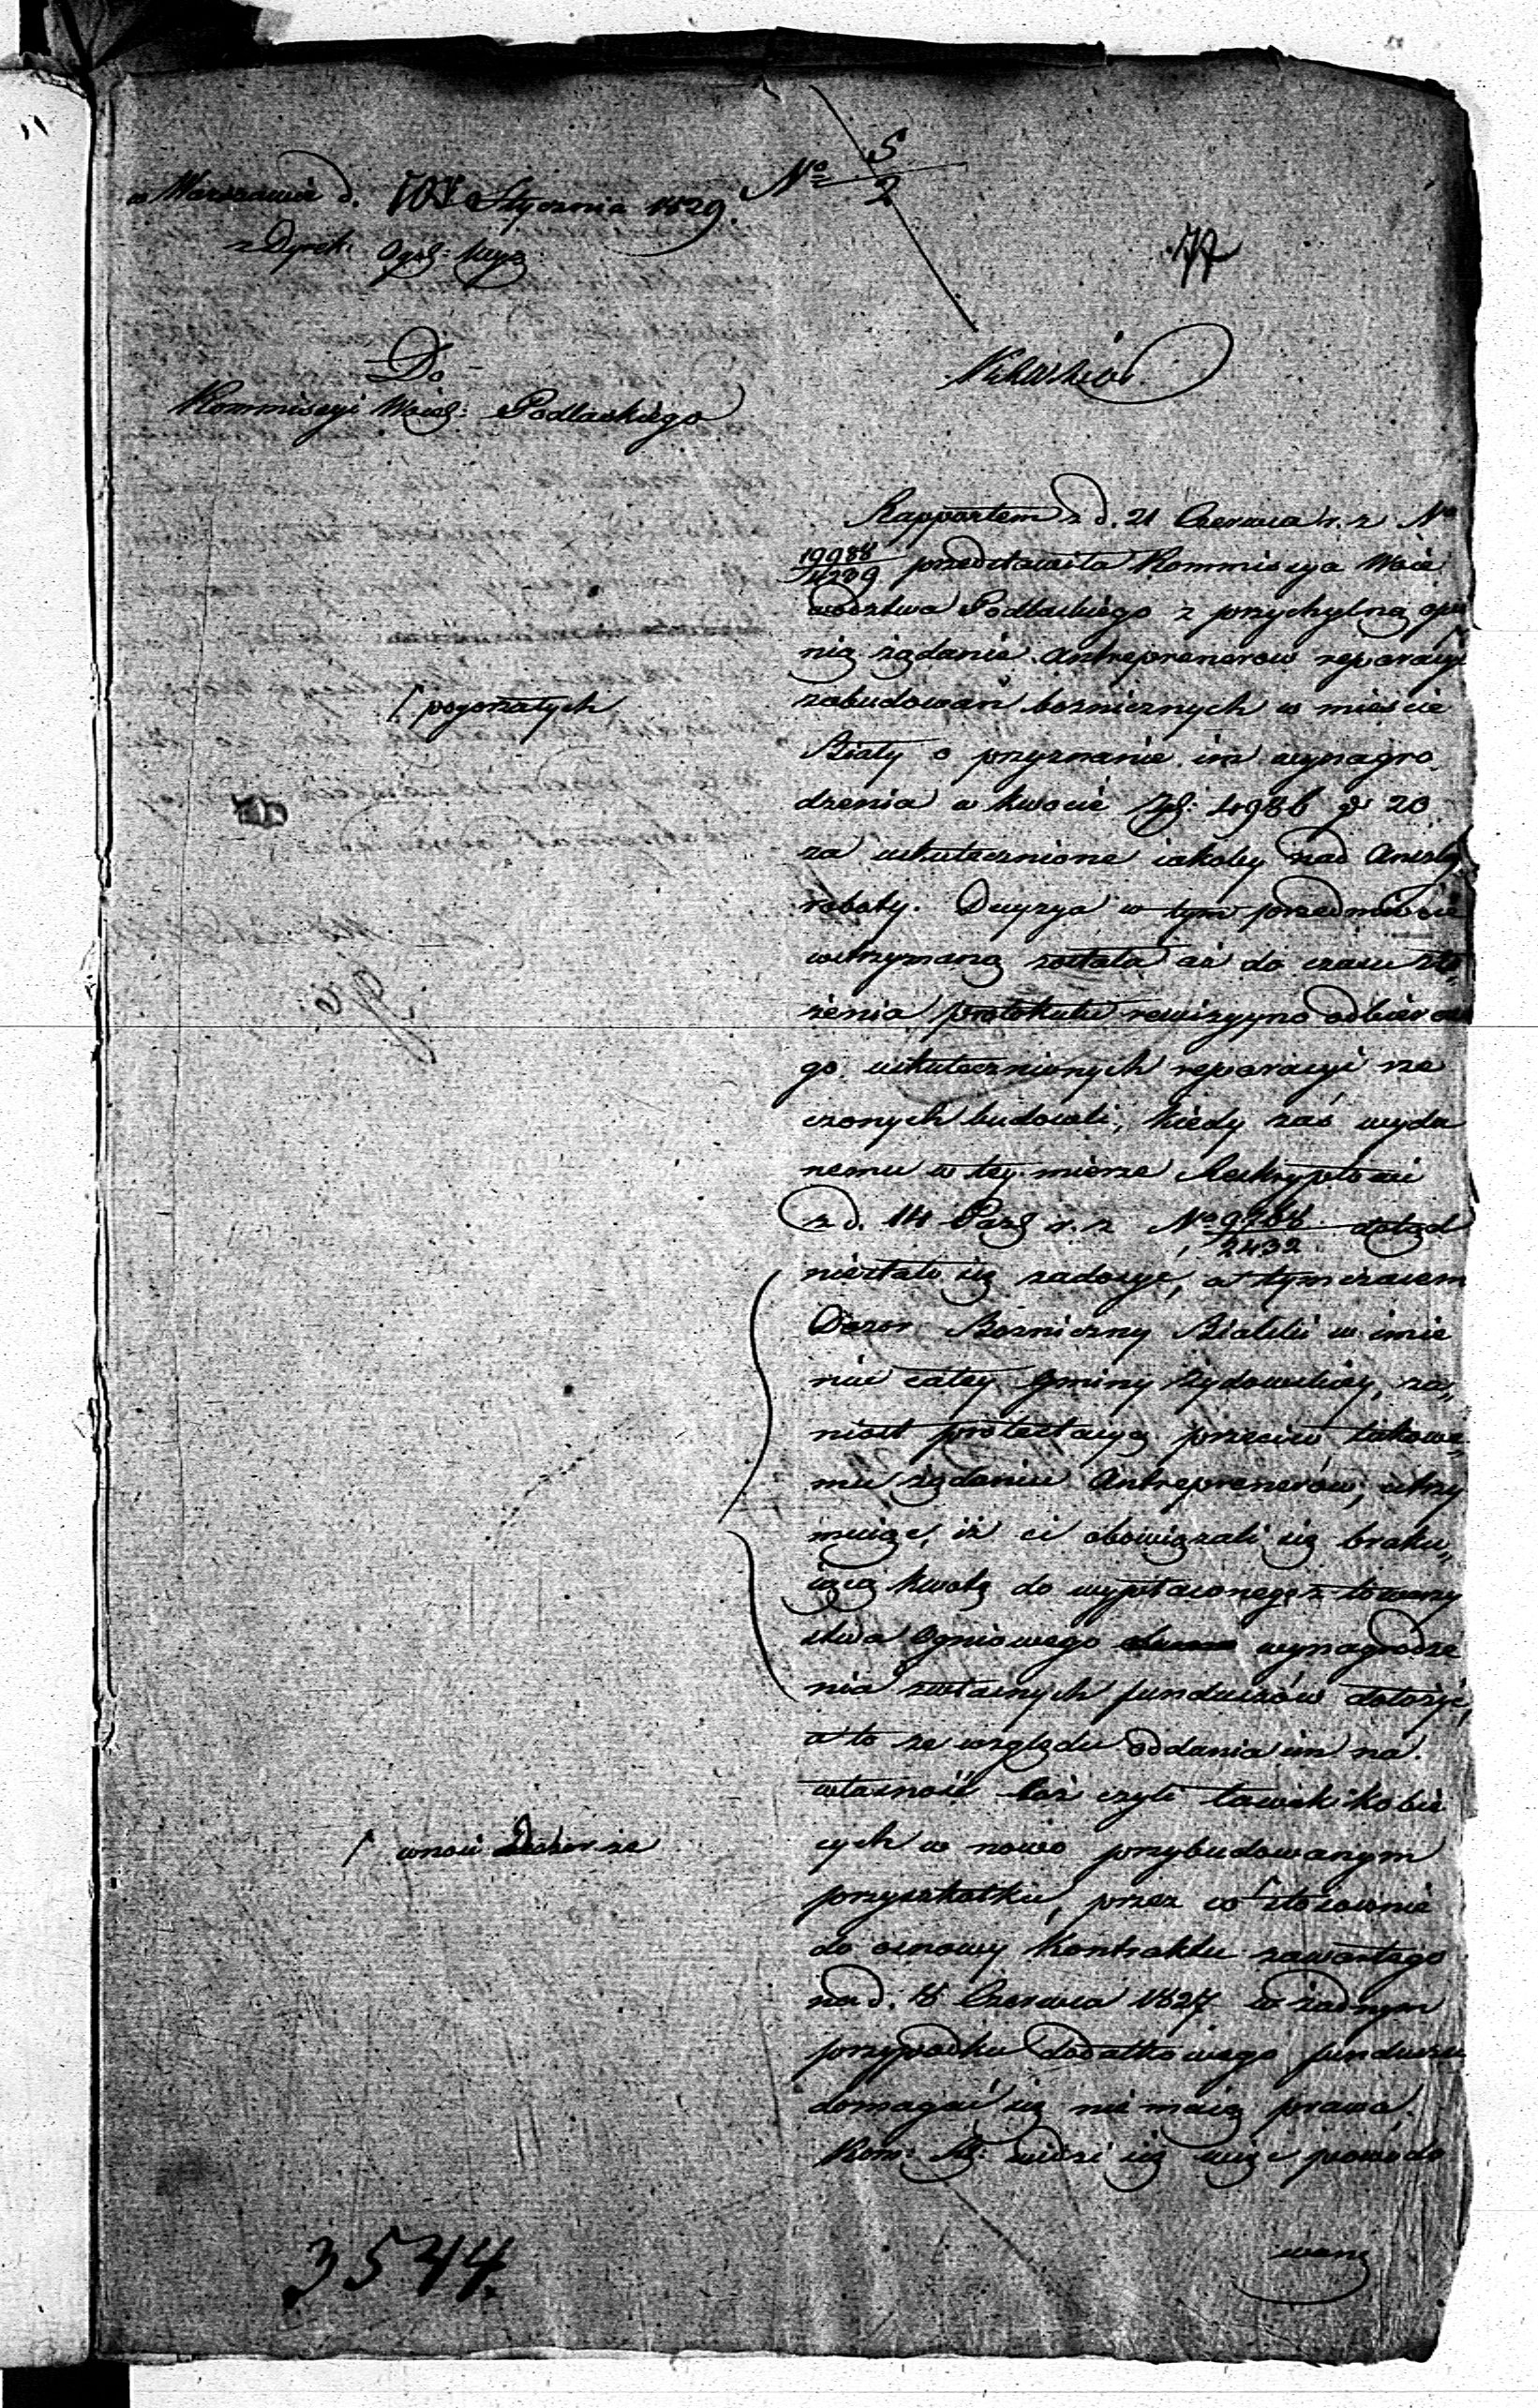 w Warszawie d. Stycznia 1829.
Nº 5/2
z Dyrek:
77
Do
Kommissyi Woiew: Podlaskiego
Rapportem z d. 21 Czerwca r. z. Nº
19988/4239 przedstawiła Kommissya Woie
wodztwa Podlaskiego z przychylną opi
nią żądanie Antreprenerow reparacyi
⌈ pogorzałych
zabudowań bozniczych w mieście
Biały o przyznanie im wynagro
dzenia w kwocie Zł: 4986 gr 20
za uskutecznione iakoby nad Anszlag
roboty. Decyzya w tym przedmiocie
wstrzymaną została aż do czasu zło„
żenia protokułu rewizyyno odbiorcze
go uskutecznionych reparacyi rze
czonych budowli; kiedy zaś wyda
nemu w tey mierze Reskryptowi
z d. 14 Paźd r. z. Nº 9768/2432 dotąd
niestało się zadosyć, a tymczasem
Dozor Bozniczny Bialski w imie
niu całey Gminy Żydowskiey, za„
niosł protestacyą przeciw takowe„
mu żądaniu Antreprenerów, utrzy
muiąc, iż ci obowiązali się braku„
iącą kwotę do wypłaconego z towarzy
stwa Ogniowego wynagrodze
nia z własnych funduszów dołożyć,
a to ze względu oddania im na
własność łoż czyli ławek kobie
⌈ wnosi Dozor że
cych w nowo przybudowanym
przyszkołku, przez co ⌈ stosownie
do osnowy Kontraktu zawartego
na d. 8 Czerwca 1827 w żadnym
przypadku dodatkowego funduszu
domagać się nie maią prawa,
Kom: Rz: widzi się więc powodo
waną
3544.